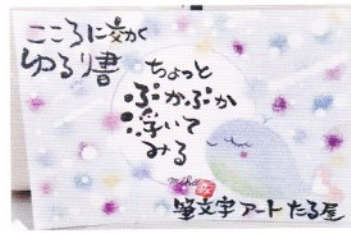 こころに効く
ゆるり書
ちょっと
ぷかぷか
浮いて
みる
筆文字アート たる屋